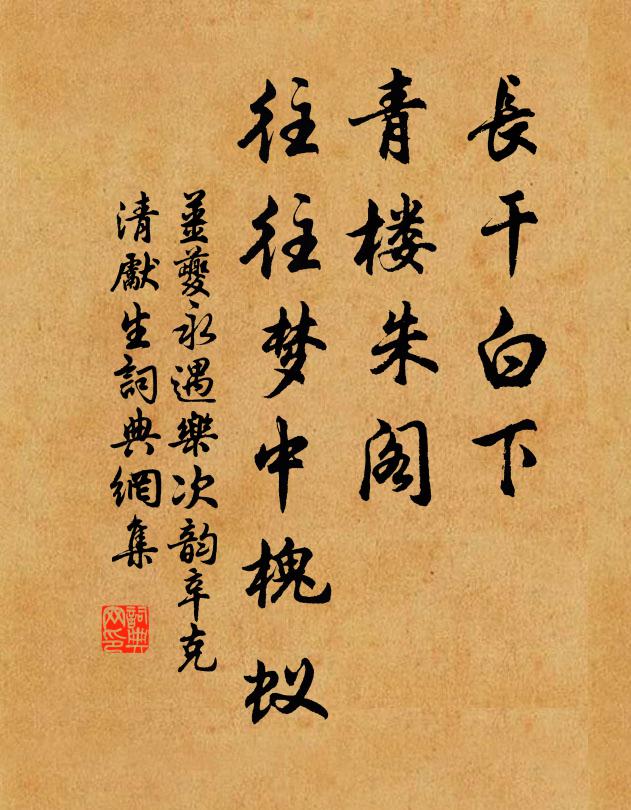 長干白下
青楼朱阁
往往梦中槐蚁
姜夔永遇樂次韵辛克
清獻生詞典網集
詞典
网印